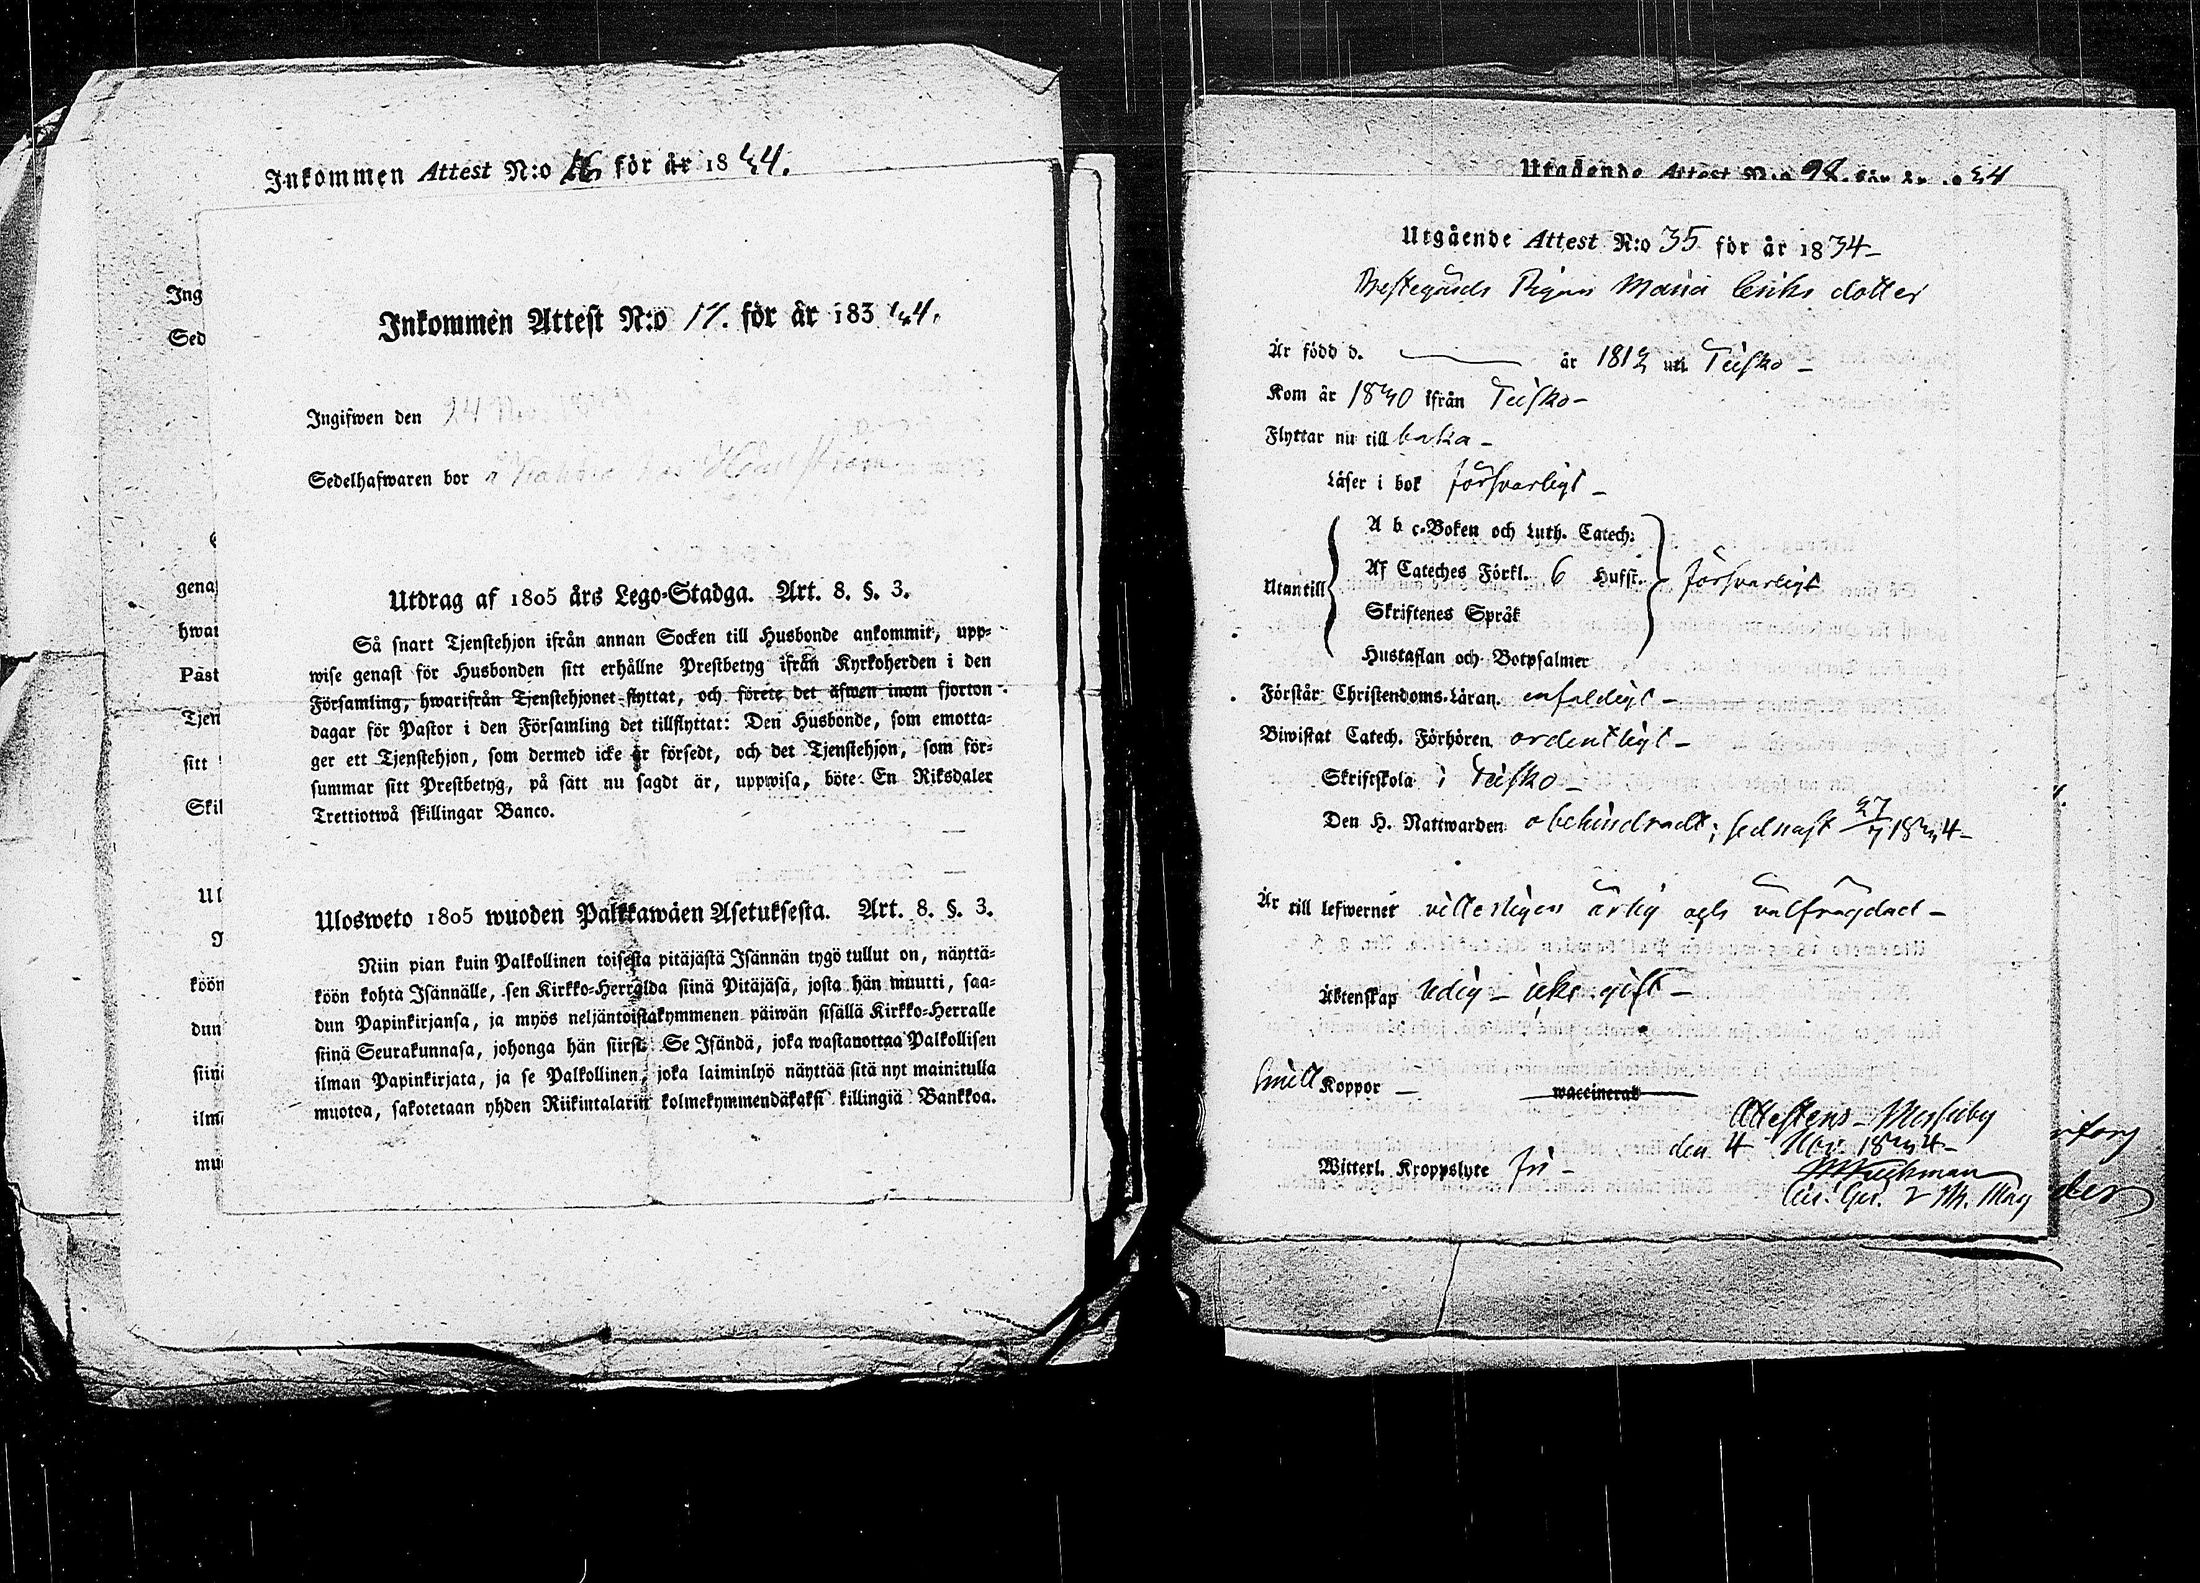 Inkommen Attest N:o 16 för år 1834.
Inkommen Attest N:o 17. för år 1834.
Ingifwen den 24 Nov.
Sedelhafwaren bor
Utdrag af 1805 års Lego-Stadga. Art. 8. §. 3.
Så snart Tjenstehjon ifrån annan Socken till Husbonde ankommit, upp-
wise genast för Husbonden sitt erhållne Prestbetyg ifrån Kyrkoherden i den
Församling, hwarifrån Tjenstehjonet flyttat, och förete det äfwen inom fjorton
dagar för Pastor i den Församling det tillflyttat: Den Husbonde, som emotta-
ger ett Tjenstehjon, som dermed icke är försedt, och det Tjenstehjon, som för-
summar sitt Prestbetyg, på sätt nu sagdt är, uppwisa, böte: En Riksdaler
Trettiotwå skillingar Banco.
Ulosweto 1805 wuoden Palkkawäen Asetuksesta. Art. 8. §. 3.
Niin pian kuin Palkollinen toisesta pitäjästä Isännän tygö tullut on, näyttä-
köön kohta Isännälle, sen Kirkko-Herralda siinä Pitäjäsä, josta hän muutti, saa-
dun Papinkirjansa, ja myös neljäntoistakymmenen päiwän sisällä Kirkko-Herralle
siinä Seurakunnasa, johonga hän siirst: Se Isändä, joka wastanottaa Palkollisen
ilman Papinkirjata, ja se Palkollinen, joka laiminlyö näyttää sitä nyt mainitulla
muotoa, sakotetaan yhden Riikintalarin kolmekymmendäkaksi killingiä Bankkoa.
Ing
Sed
gena
hwar
Past
Tjen
sitt
Skil
Ul
köön
dun
siinä
ilma
muo
Utgående Attest N:o 98. för år 1834
Utgående Attest N:o 35 för år 1834-
Prestegårds Pigan Maria Eriks dotter
Är född d. — år 1812 uti Teisko -
Kom år 1830 ifrån Teisko-
Flyttar nu till baka -
Läser i bok försvarligt -
Utantill
A b c-Boken och Luth. Catech:
Af Cateches Förkl. 6 Hufst. försvarligt
Skriftenes Språk
Hustaflan och Botpsalmer
Förstår Christendoms-Läran enfaldigt -
Biwistat Catech. Förhören ordentligt -
Skriftskola i Teisko -
Den H. Nattwarden obehindradt; sednast 27/7 1834-
Är till lefwernet vitterligen ärlig och välfrägdad -
Äktenskap ledig - icke gift -
haft Koppor - waccinerad
Attesteras - Messuby
den 4 Nov. 1834-
Witterl. Kroppslyte fri -